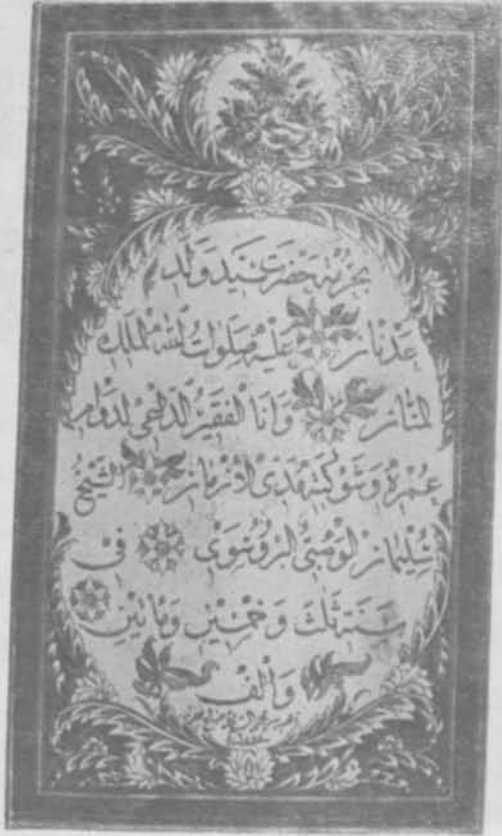 بحرمة حضرت سيد ولد
عدنان عليه صلوات الله الملك
المنان وانا الفقير الداعي لدوام
عمره وشوكته هذى الاقران الشيخ
سليمان الوهبي البروسوى فى
سنة ثلث وخمسين ومأتين
والف